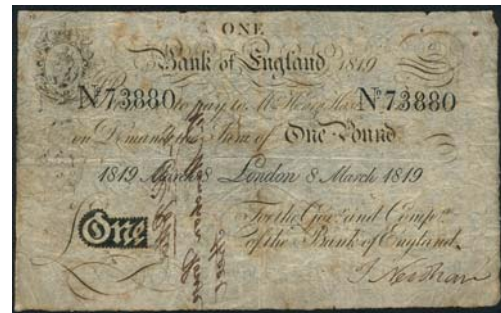 ONE
Bank of England 1819
Nº 73880 to pay to Mr Henry Hase Nº 73880
on Demand the Sum of One Pound
1819 March 8 London 8 March 1819
For the Govr. and Compa.
of the Bank of England.
One